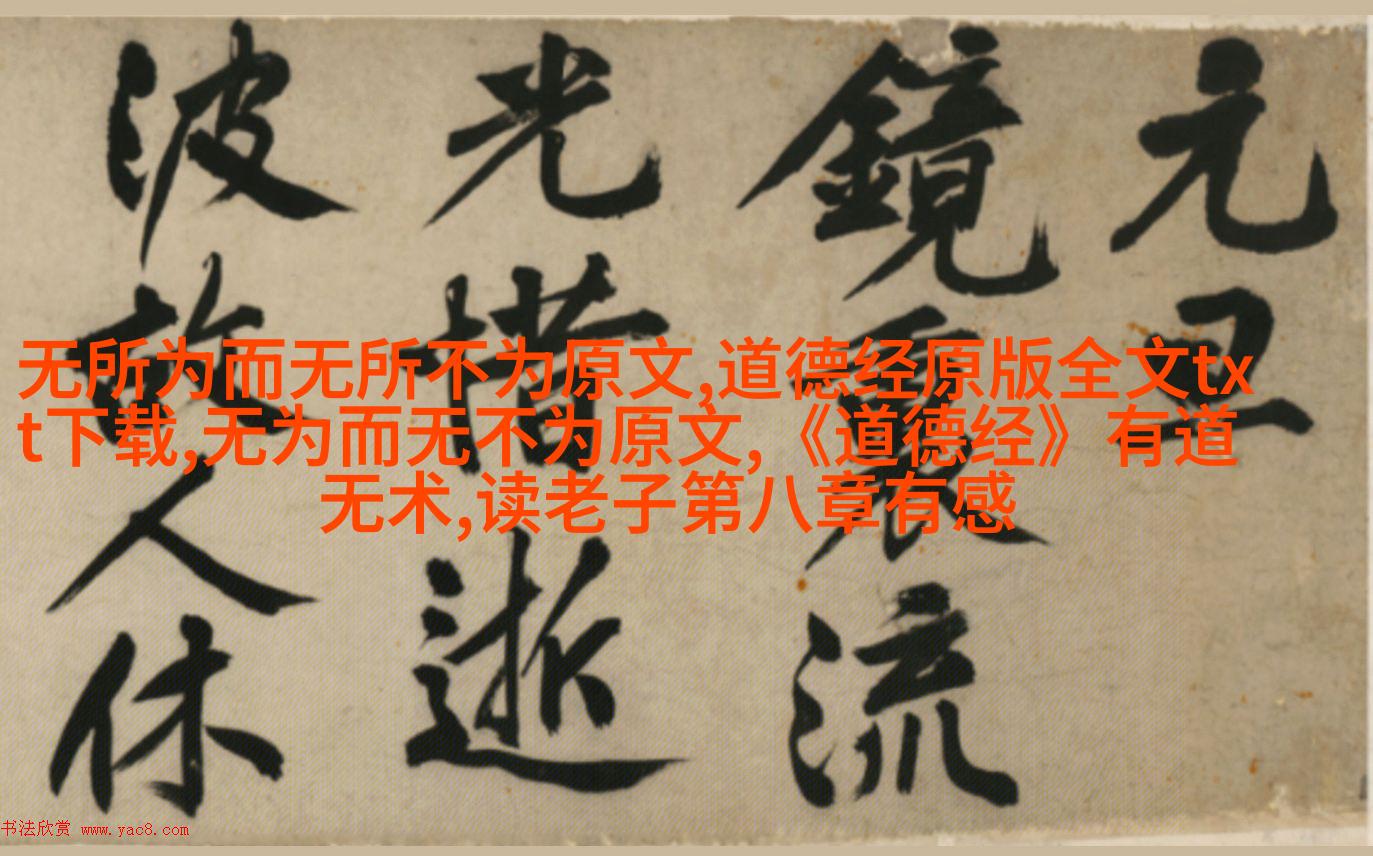 元丑
鏡裏流
光惜逝
波故人休
无所为而无所不为原文,道德经原版全文tx
t下载,无为而无不为原文,《道德经》有道
无术,读老子第八章有感
书法欣赏 www.yac8.com